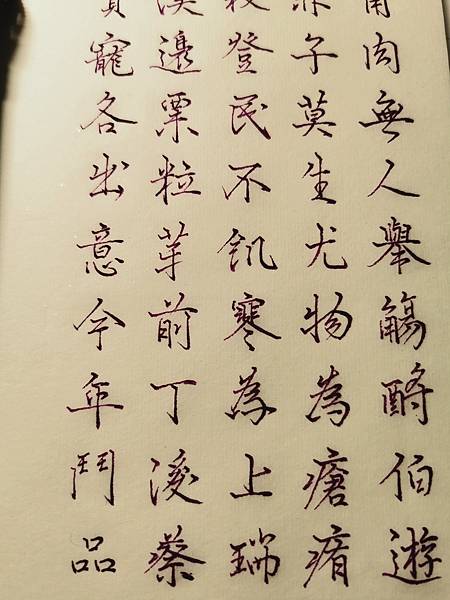 肉無人舉觴酹伯遊
子莫生尤物為瘡痏
登民不飢寒為上瑞
邊粟粒芽前丁後蔡
寵各出意今年鬥品